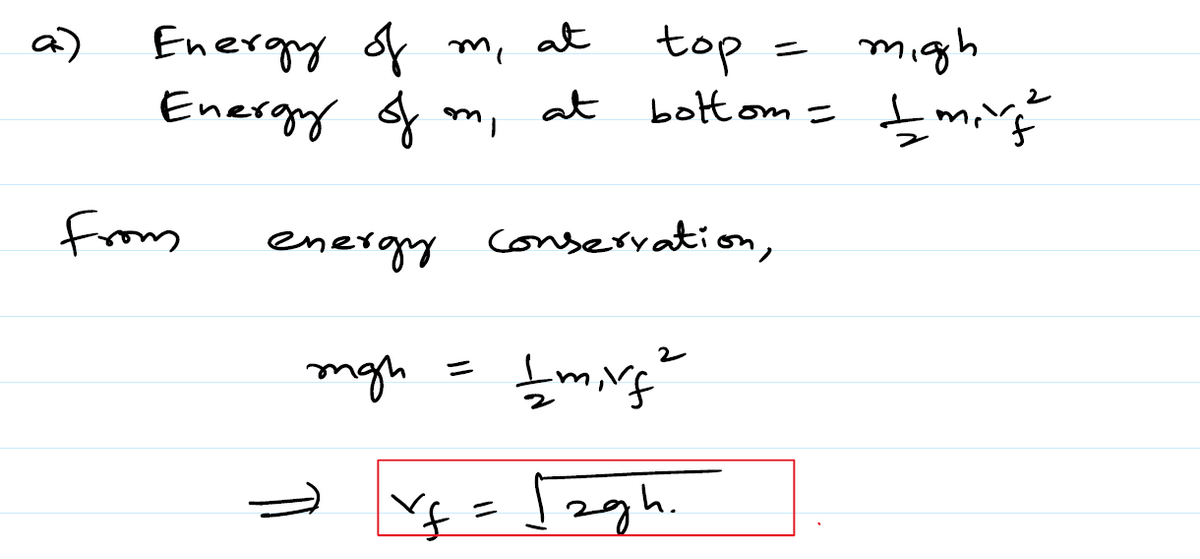 a) Energy of m₁ at top = m₁gh
Energy of m₁ at bottom = 1/2 m₁v_f²
from energy conservation,
mgh = 1/2 m₁v_f²
⇒ v_f = √2gh.